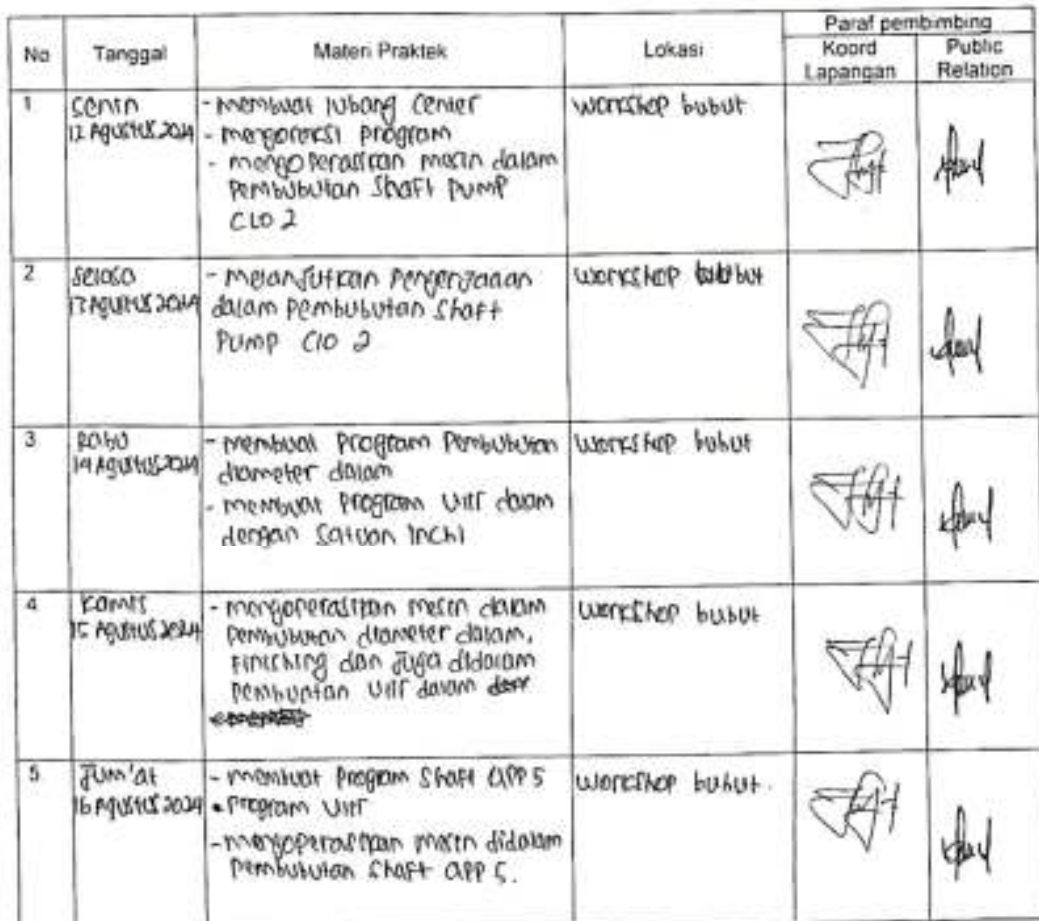 No Tanggal Materi Praktek Lokasi Paraf pembimbing
Koord Lapangan Public Relation
1 Senin
12 Agustus 2024
- membuat lubang Center
- mengoreksi program
- mengoperasikan mesin dalam
pembubutan Shaft pump
CLO 2
workshop bubut
2 Selasa
13 Agustus 2024
- melanjutkan pengerjaaan
dalam pembubutan Shaft
pump ClO 2
workshop but
3 Rabu
14 Agustus 2024
- membuat program pembubutan
diameter dalam
- membuat program Ulir dalam
dengan Satuan inchi
workshop bubut
4 Kamis
15 Agustus 2024
- mengoperasikan mesin dalam
pembubutan diameter dalam,
Finishing dan Juga didalam
Ulir dalam
workshop bubut
5 Jum'at
16 Agustus 2024
- membuat program Shaft app 5
• program Ulir
- mengoperasikan mesin didalam
pembubutan Shaft app 5.
workshop bubut.